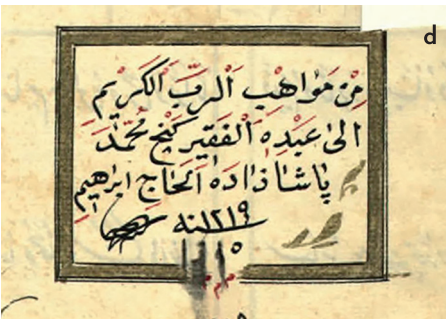 d
مِنْ مَوَاهِبِ اَلرَّبِّ اَلْكَرِيْمِ
اِلىٰ عَبْدِهِ اَلْفَقِيرِ كَنْج مُحَمَّد
پَاشَا زَادَه اَلْحَاجِ اِبْرَاهِيم
سنه ١٢١٩